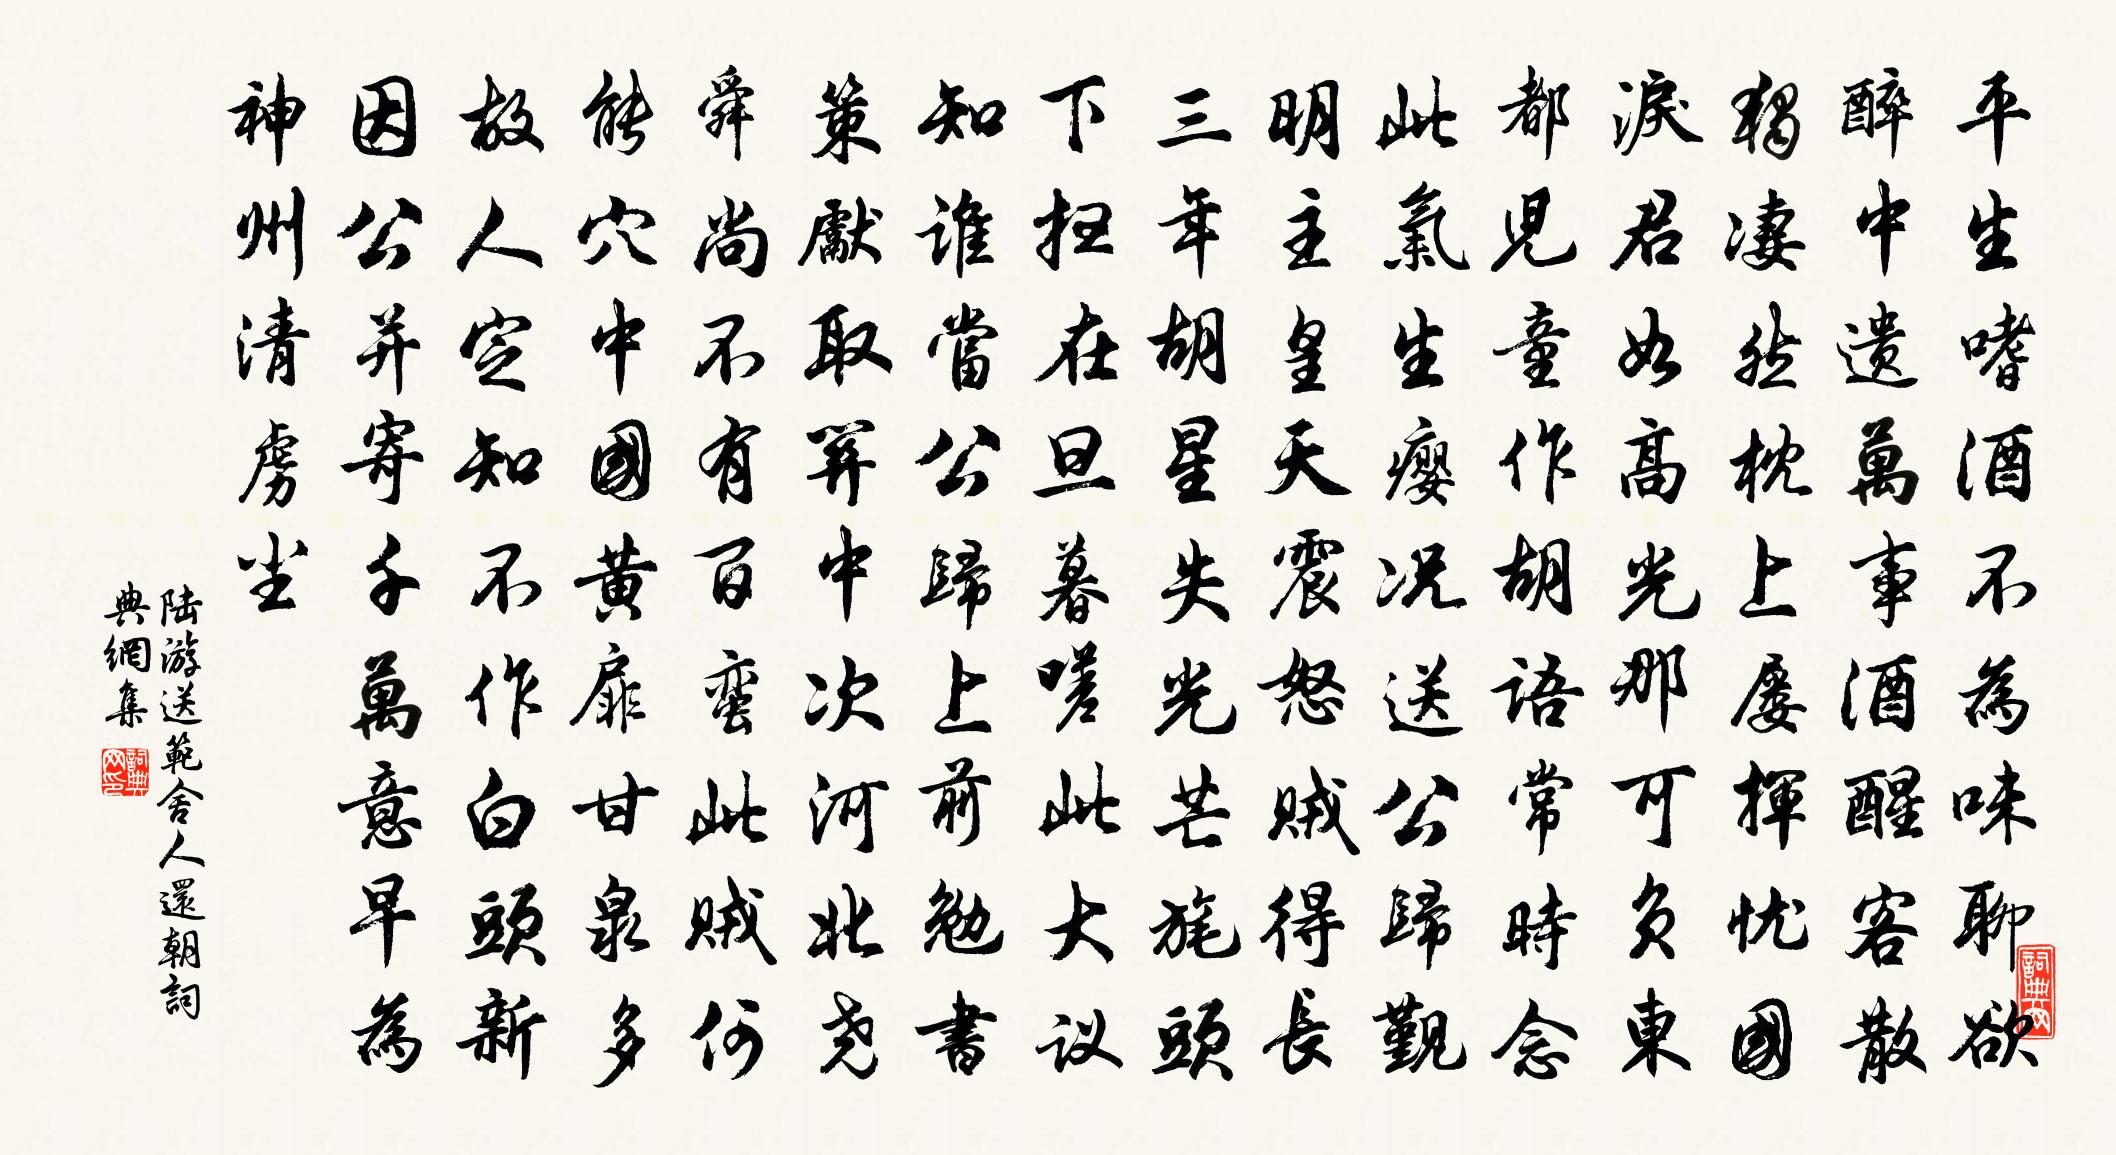 平生嗜酒不為味聊欲
醉中遗萬事酒醒客散
獨凄然枕上屡揮忧國
淚君如高光那可負東
都兒童作胡語常時念
此氣生癭况送公歸覲
明主皇天震怒賊得長
三年胡星失光芒旄頭
下扫在旦暮嗟此大议
知誰當公歸上前勉書
策獻取關中次河北尧
舜尚不有百蛮此賊何
能穴中國黄扉甘泉多
故人定知不作白頭新
因公并寄千萬意早為
神州清虜尘
陆游送範舍人還朝詞
典網集
詞典网印
詞典网